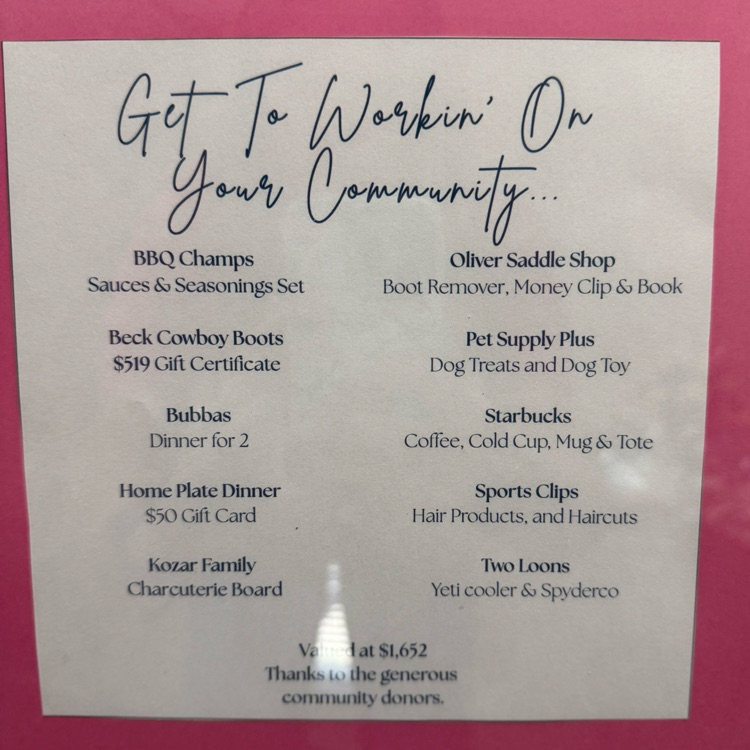 Get To Workin' On
Your Community...
BBQ Champs
Sauces & Seasonings Set
Beck Cowboy Boots
$519 Gift Certificate
Bubbas
Dinner for 2
Home Plate Dinner
$50 Gift Card
Kozar Family
Charcuterie Board
Oliver Saddle Shop
Boot Remover, Money Clip & Book
Pet Supply Plus
Dog Treats and Dog Toy
Starbucks
Coffee, Cold Cup, Mug & Tote
Sports Clips
Hair Products, and Haircuts
Two Loons
Yeti cooler & Spyderco
Valued at $1,652
Thanks to the generous
community donors.